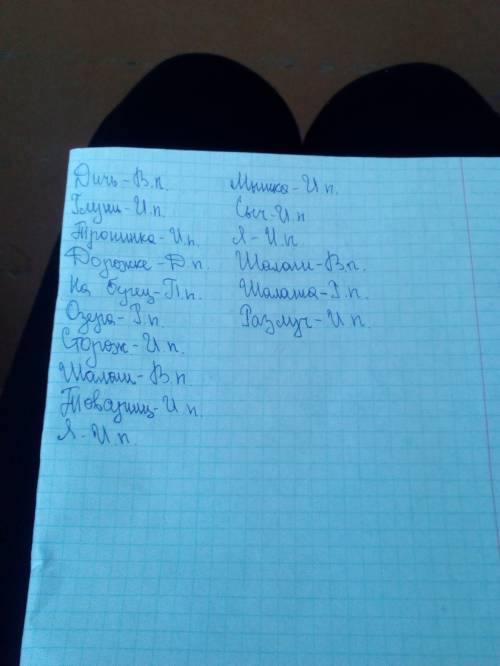 Дичь-В.п.
Глуши-И.п.
Тропинка-И.п.
Дорожке-Д.п.
На берег-П.п.
Озера-Р.п.
Сторож-И.п.
Шалаш-В.п.
Товарищ-И.п.
Я-И.п.
Мышка-И.п.
Сыч-И.п
Я-И.п.
Шалаш-В.п.
Шалаша-Р.п.
Разлуч-И.п.